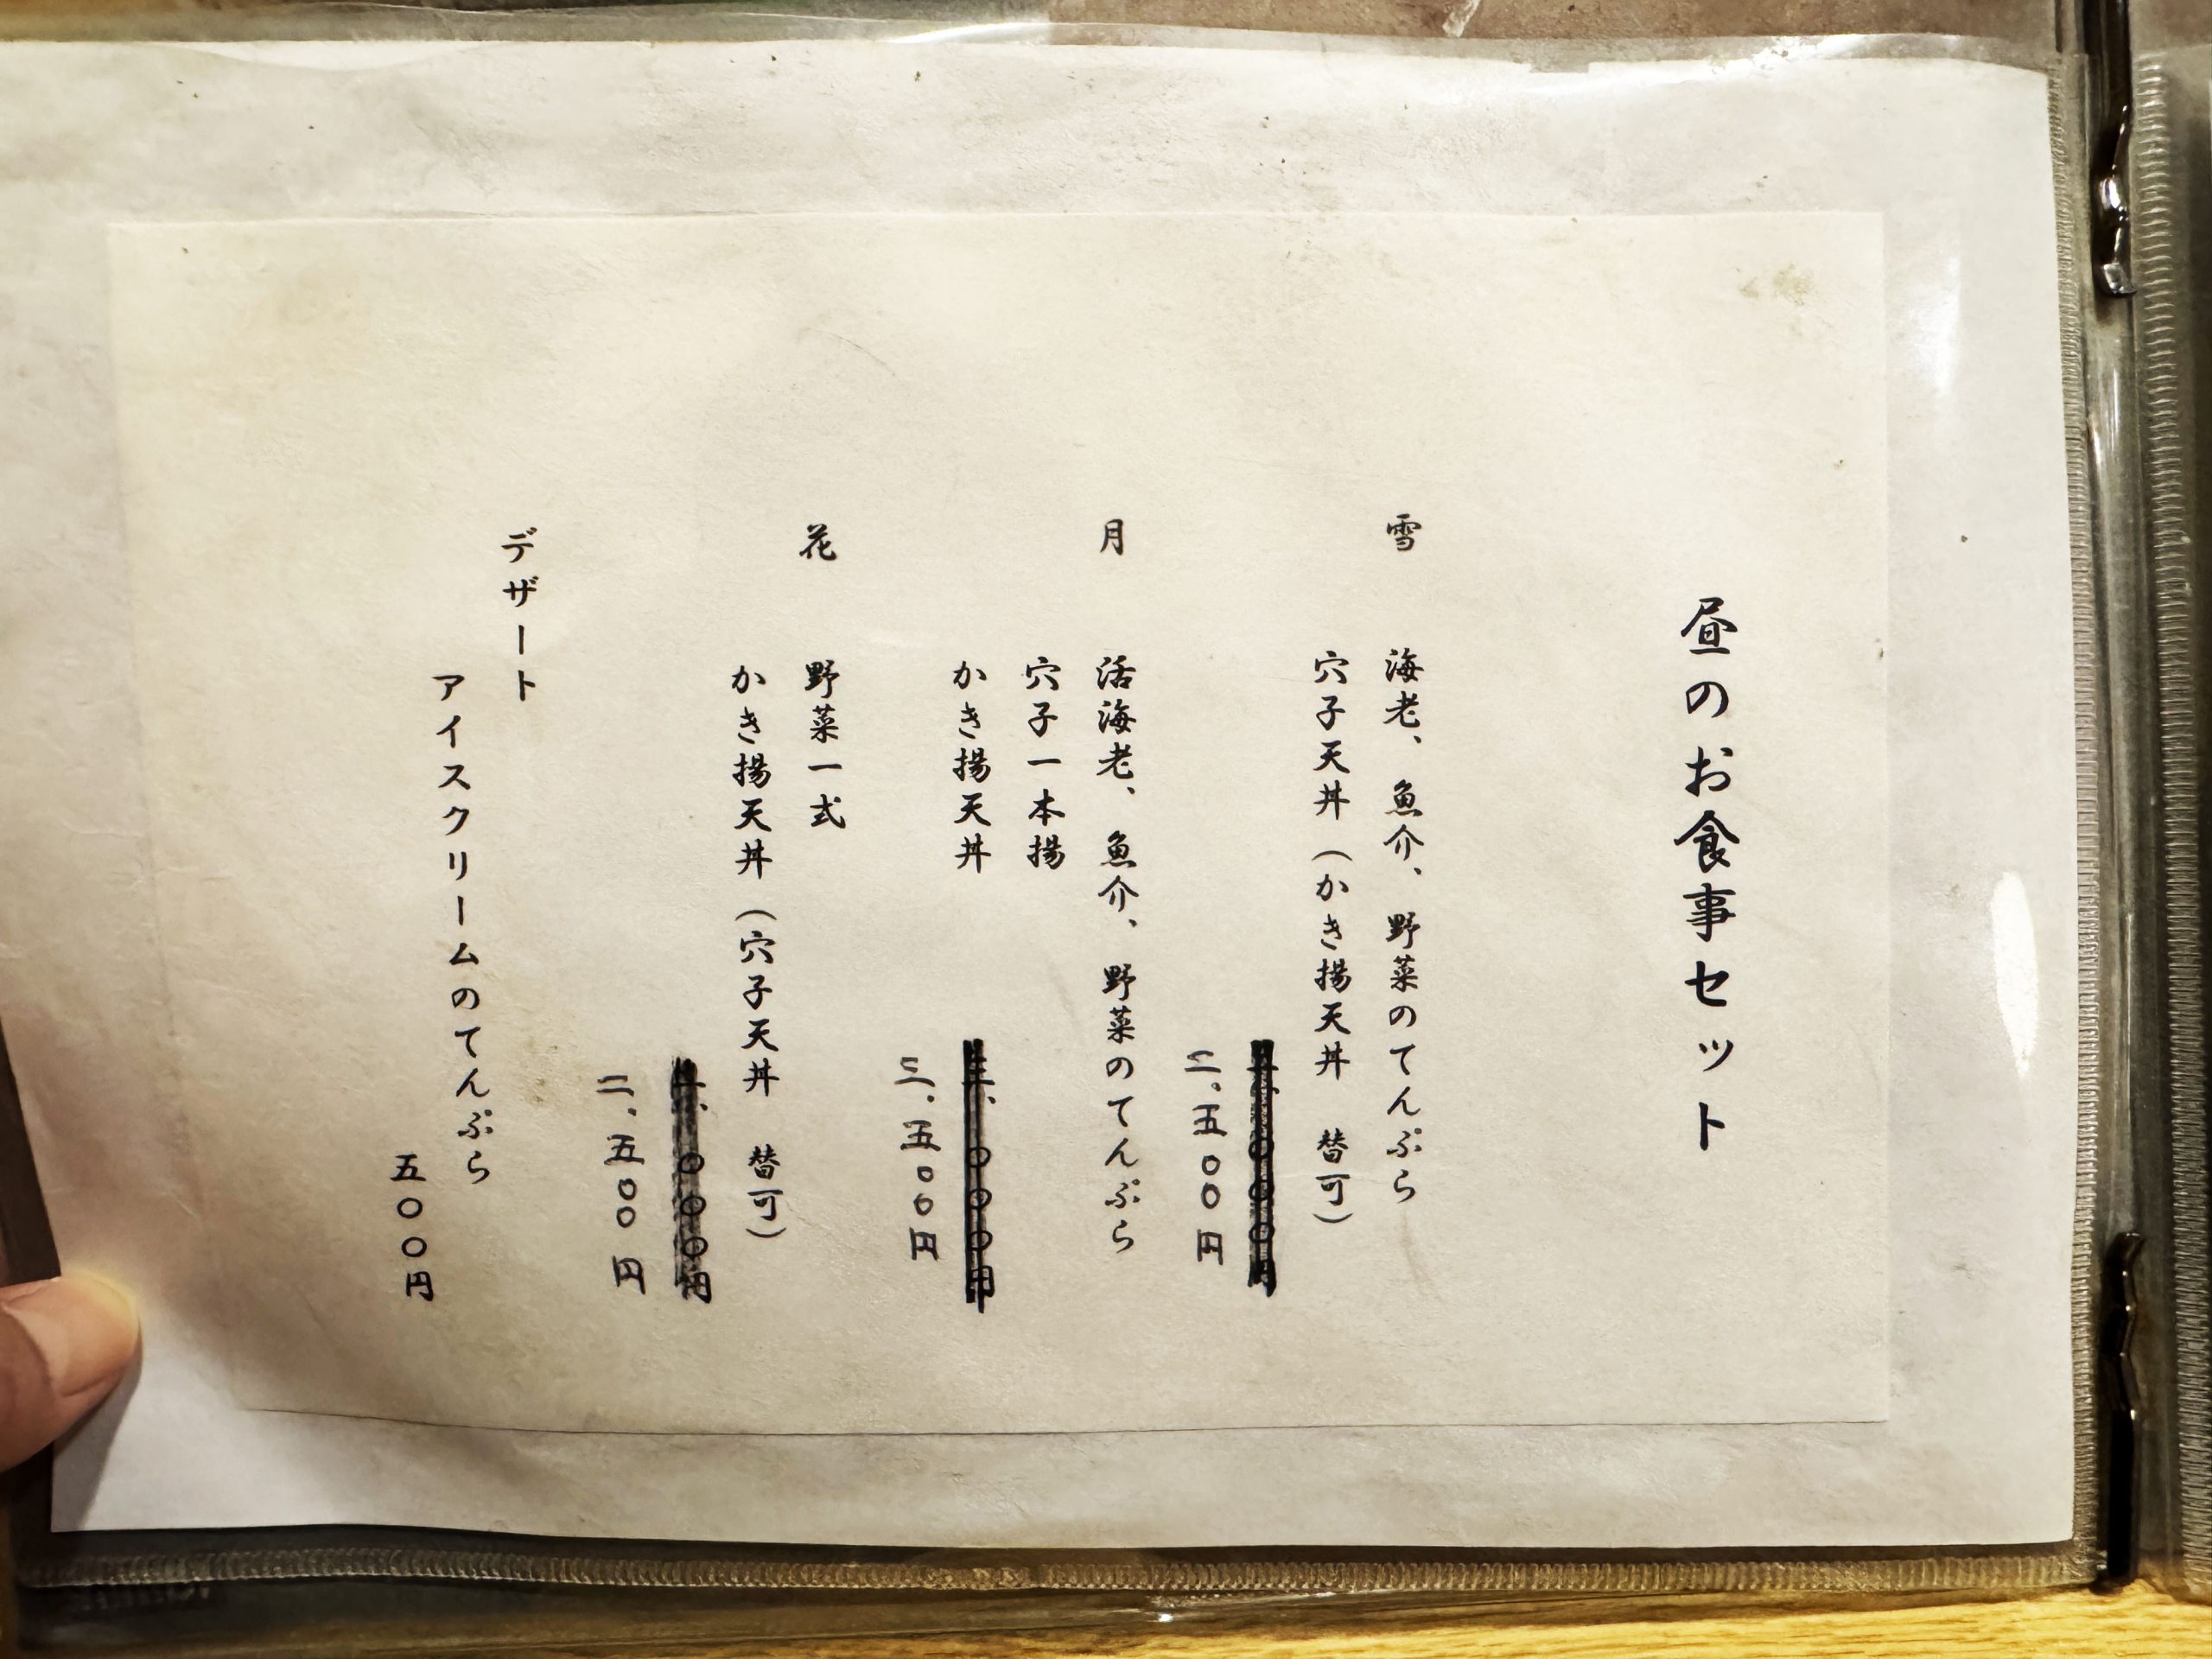 昼のお食事セット
雪 海老、魚介、野菜のてんぷら
穴子天丼（かき揚天丼 替可）
二.五〇〇円
月 活海老、魚介、野菜のてんぷら
穴子一本揚
かき揚天丼
三.五〇〇円
花 野菜一式
かき揚天丼（穴子天丼 替可）
二.五〇〇円
デザート
アイスクリームのてんぷら
五〇〇円